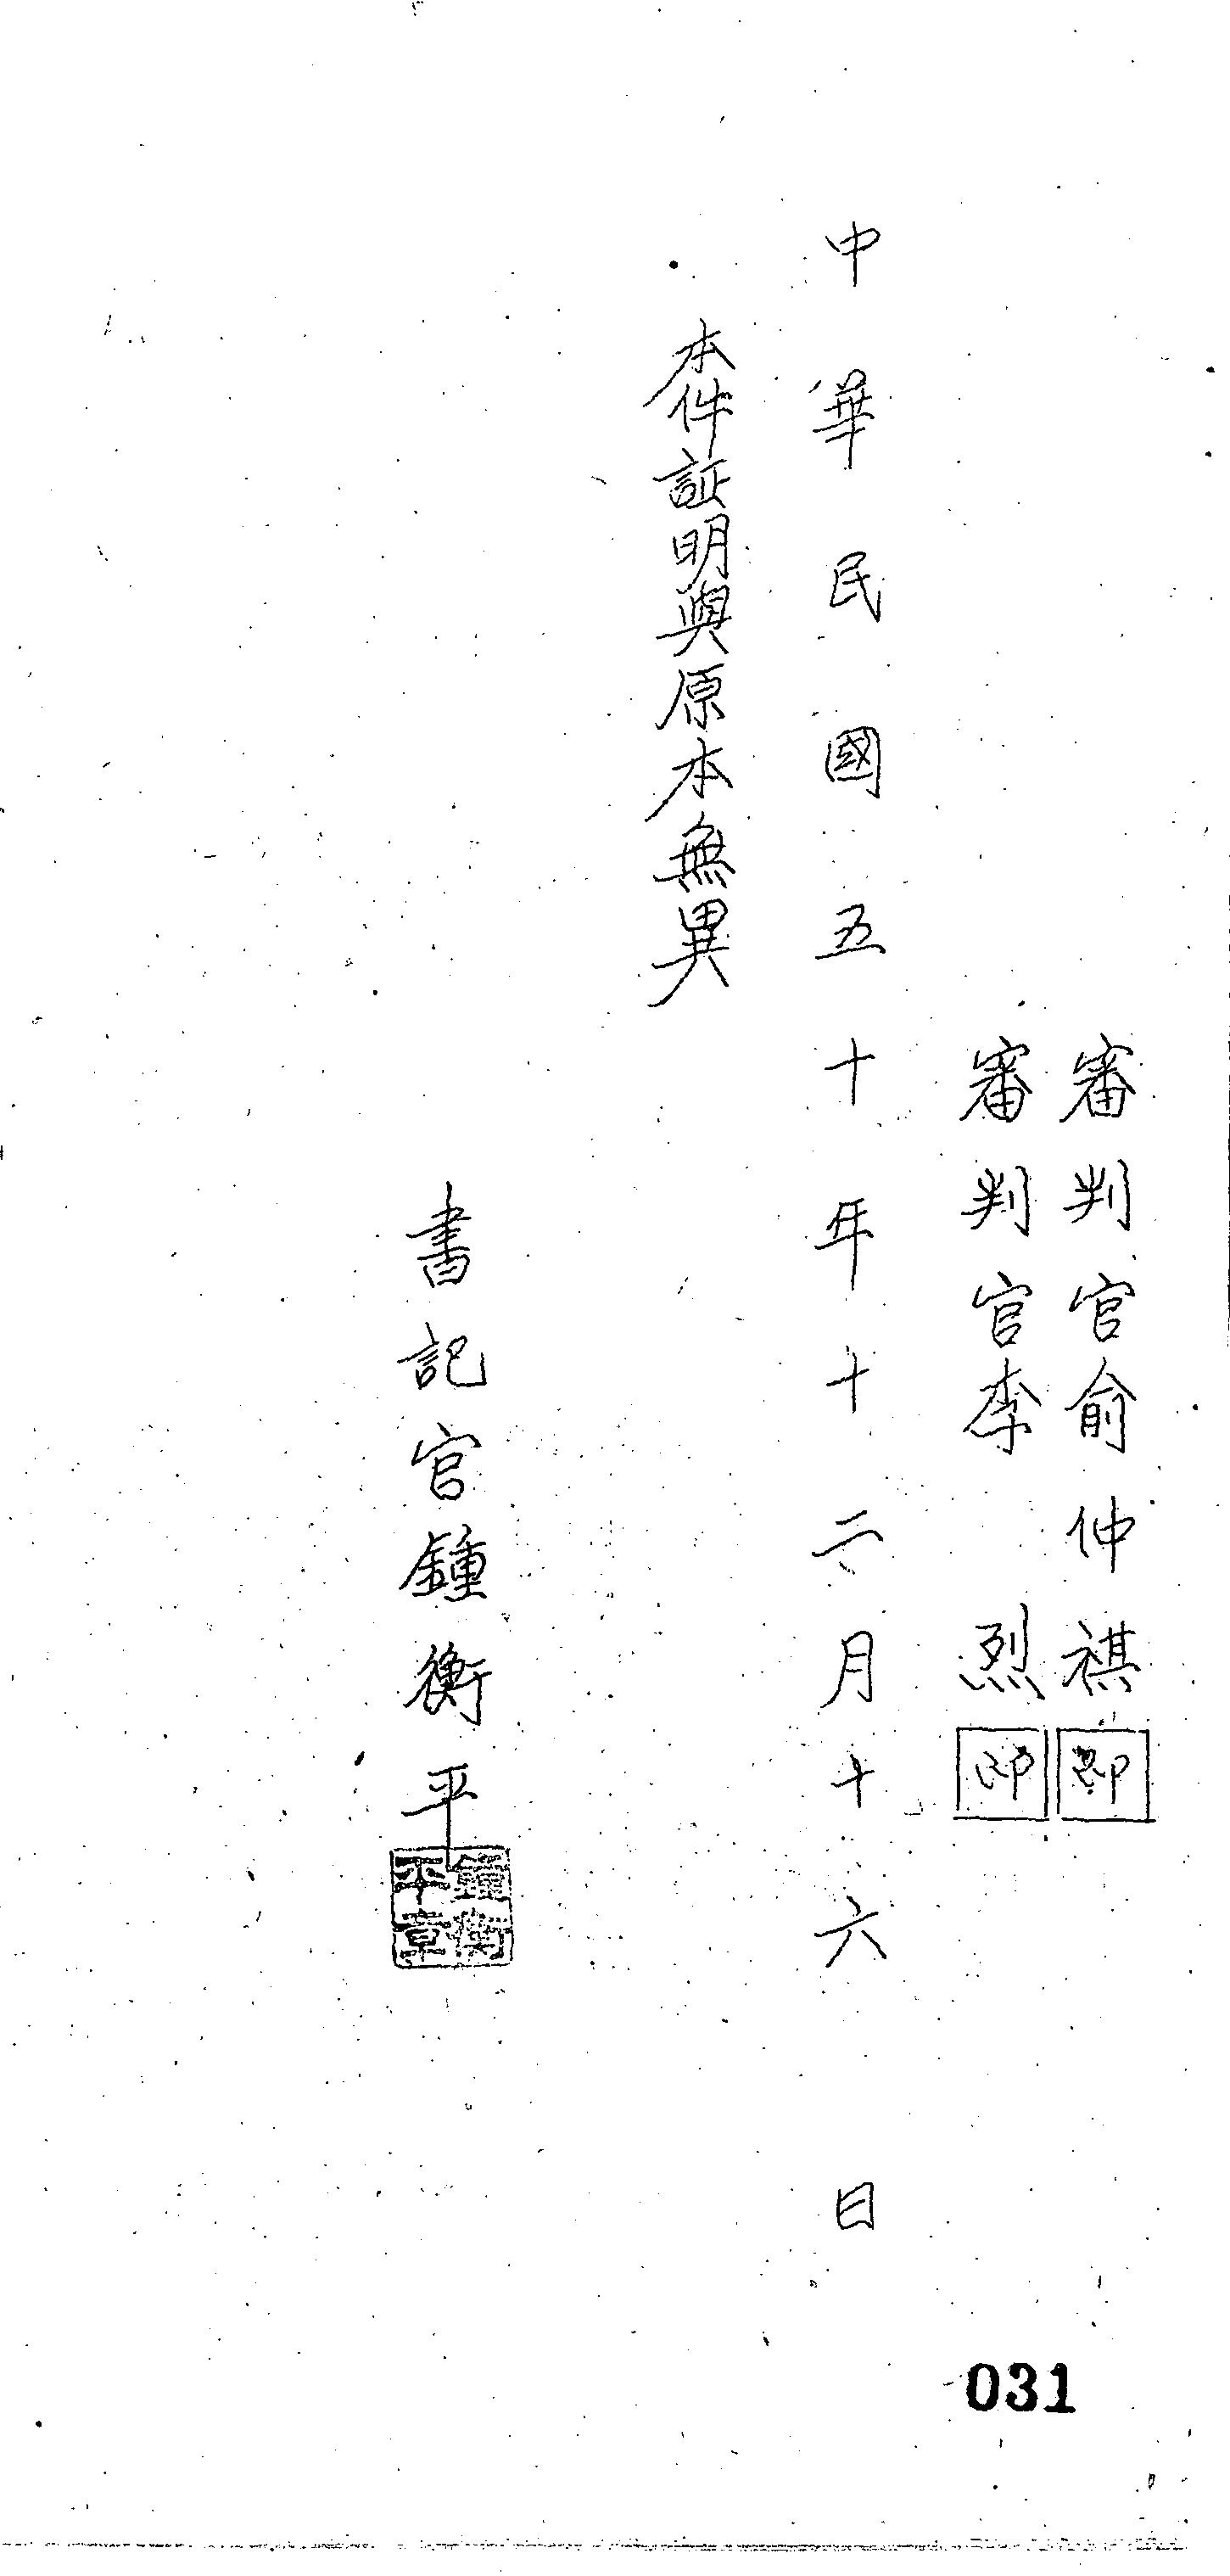 審判官俞仲祺印
審判官李烈印
中華民國五十年十二月十六日
本件証明與原本無異
書記官鍾衡平
鍾衡平章
031